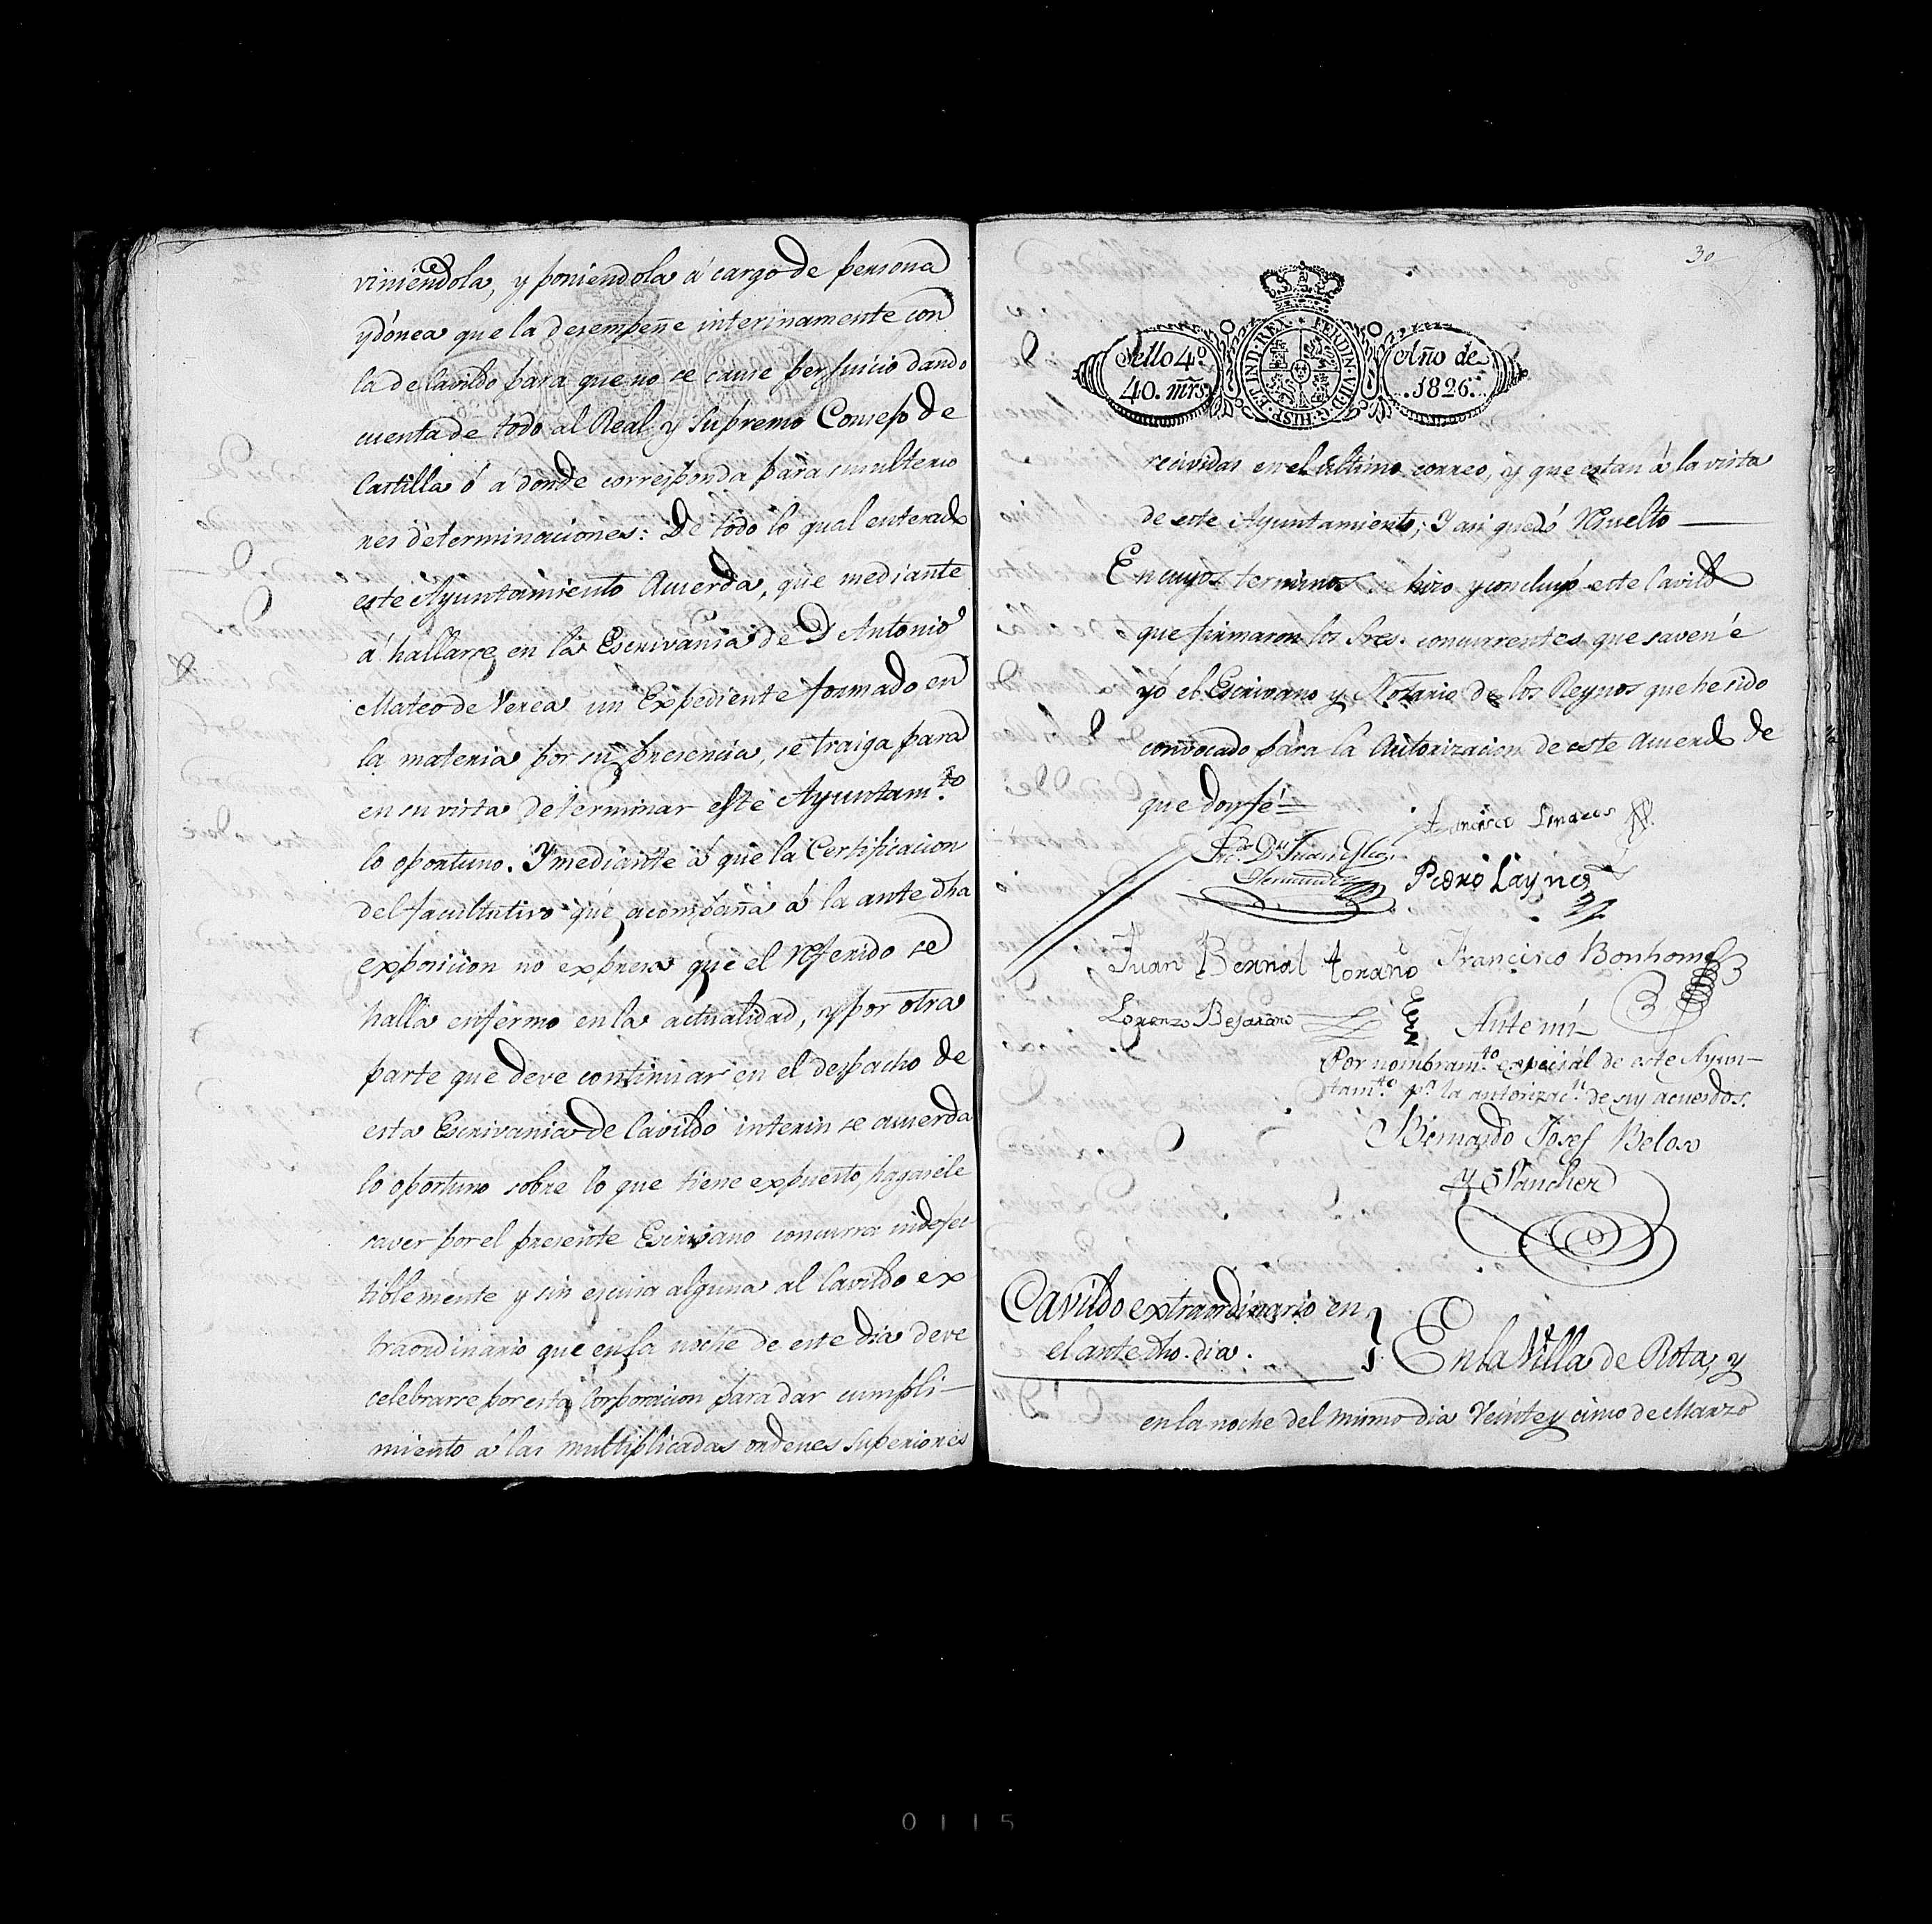 viniendola, y poniendola á cargo de persona
ydónea que la desempeñe interinamente con
la de Cavildo para que no se cause perjuicio dando
cuenta de todo al Real y Supremo Consejo de
Castilla ó á donde corresponda para sus ulterio
res determinaciones: De todo lo qual enterado
este Ayuntamiento Acuerda, que mediante
á hallarse en la Escrivania de Dn Antonio
Mateo de Verea un Expediente formado en
la materia por su presencia, se traiga para
en su vista determinar este Ayuntam.to
lo oportuno. Y mediante á que la Certificacion
del facultativo que acompaña á la ante dha
exposicion no expresa que el referido se
halla enfermo en la actualidad, y por otra
parte que deve continuar en el despacho de
esta Escrivania de Cavildo interin se acuerda
lo oportuno sobre lo que tiene expuesto, hagasele
saver por el presente Escrivano concurra indefec-
tiblemente y sin escusa alguna al Cavildo ex
traordinario que en la noche de este dia deve
celebrarse por esta Corporacion para dar cumpli-
miento á las multiplicadas ordenes superiores
30
Sello 4º
40. mrs
FERDIN. VII. D. G. HISP. ET IND. REX
Año de
1826.
recividas en el ultimo correo, y que estan á la vista
de este Ayuntamiento; Y asi quedó resuelto
En cuyos terminos se hizo y concluyó este Cavildo
que firmaron los Sres. concurrentes que saven é
yo el Escrivano y Notario de los Reynos que he sido
convocado para la Autorizacion de este Acuerdo de
que doy fé
Francisco
Juan
Pedro Laynes
Juan Bernal toraño Francisco Bonhome
Lorenzo Bejarano
Ante mi
Por nombram.to especial de este Ayun-
tam.to p.a la autorizac.n de sus acuerdos.
Bernardo Josef Beloso
y Sanchez
Cavildo extraordinario en
el ante dho. dia.
En la Villa de Rota, y
en la noche del mismo dia Veinte y cinco de Marzo
0115